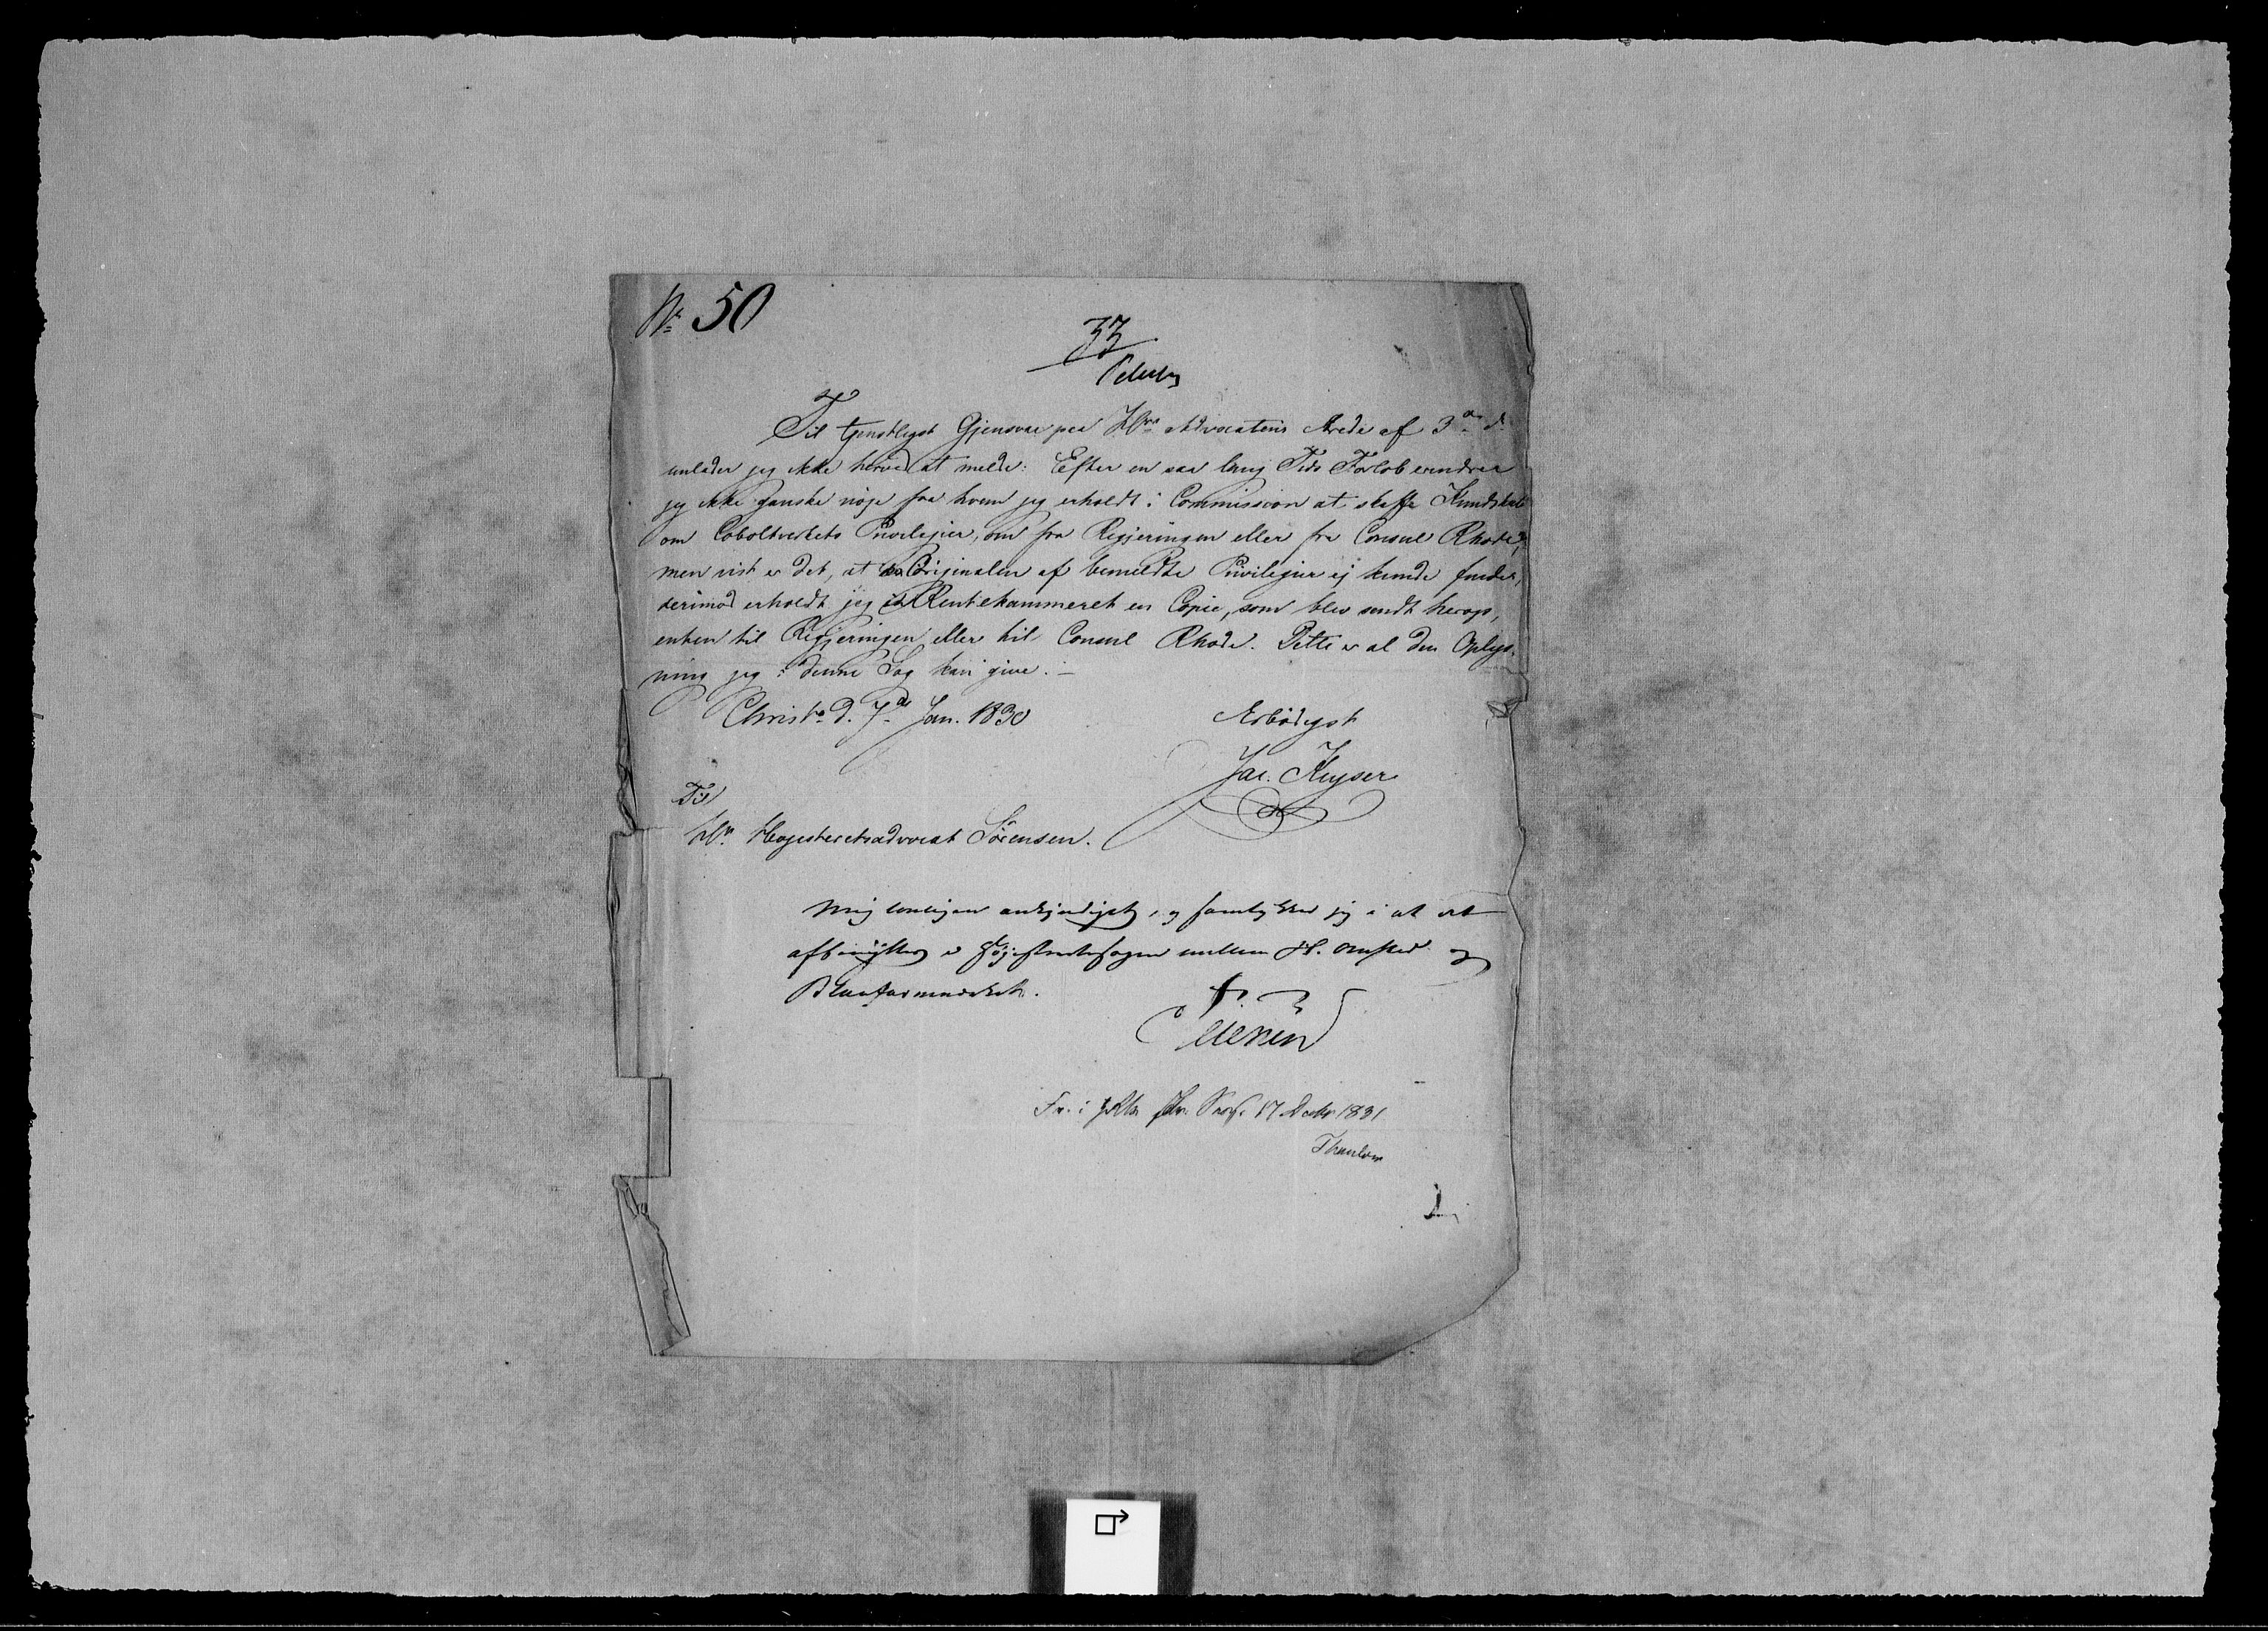 No 50
33
Til tjenstligst Gjensvar paa Hr Advocatens Ærede af 3de ds
unlader jeg ikke herved at melde: Efter en saa lang Tids Forlob erindrer
jeg ikke ganske nöje fra hvem jeg erholdt i Commission at skaffe Kundskab
om Coboltverkets Privilegier, om fra Regjeringen eller fra Consul Rhode,
men vist er det, at Originalen af bemeldte Privilegier ej kunde findes,
derimod erholdt jeg i Rentekammeret en Copie, som blev sendt herop,
enten til Regjeringen eller til Consul Rhode. Dette er al den Oplys-
ning jeg i denne Sag kan give. —
Christa d. 7de Jan. 1830
Erbödigst
Jac. Keyser
Til
Hr. Høgesteretsadvocat Sörensen.
Mig lovligen ankyndiget, og samtykker jeg i at det
afbenyttes i Höjesteretssagen mellem H. Omsted og
Blaafarveværket.
Fr. i 17 Decbr 1831
Thaulow